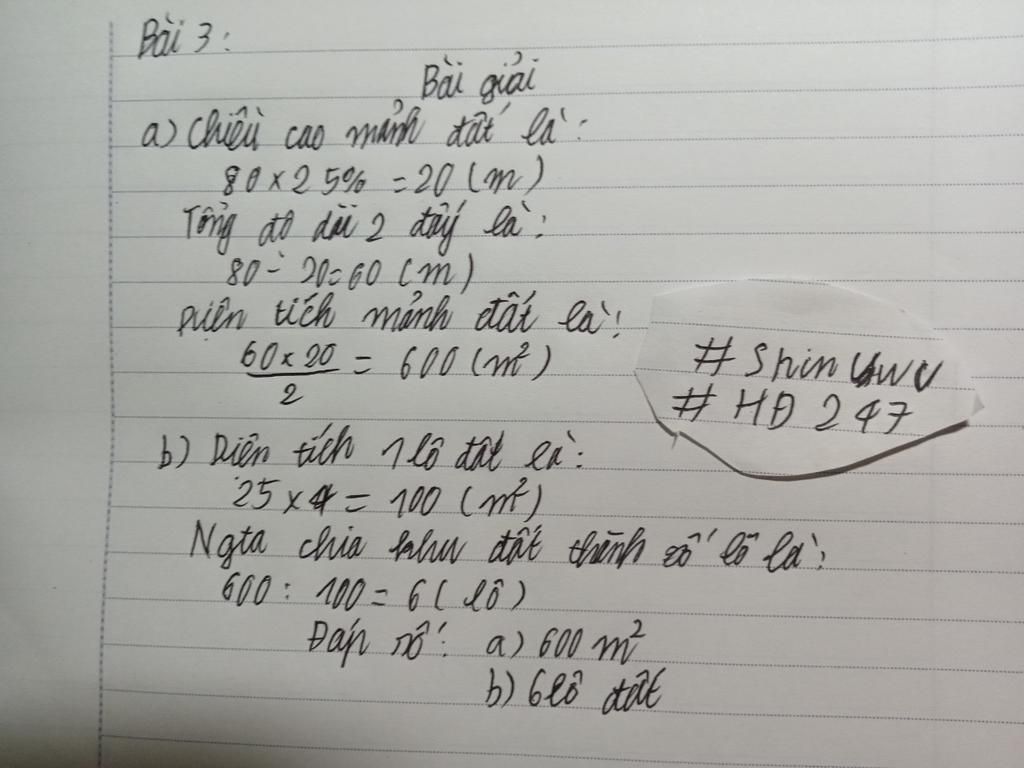 Bài 3:
Bài giải
a) Chiều cao mảnh đất là:
80 x 25% = 20 (m)
Tổng độ dài 2 đáy là:
80 - 20 = 60 (m)
Diện tích mảnh đất là:
60 x 20 / 2 = 600 (m²)
# Shin UwU
# HĐ 247
b) Diện tích 1 lô đất là:
25 x 4 = 100 (m²)
Ngta chia khu đất thành số lô là:
600 : 100 = 6 (lô)
Đáp số: a) 600 m²
b) 6 lô đất